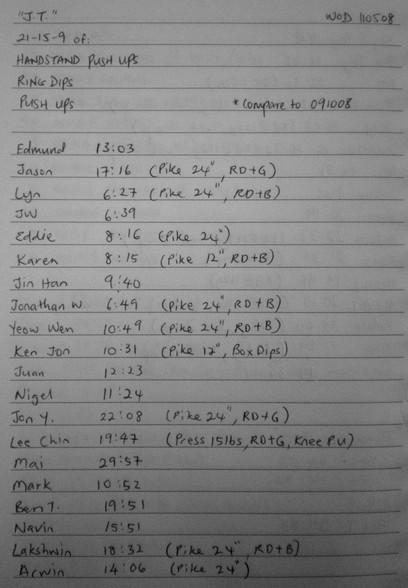 "J.T." WOD 110508
21-15-9 of:
HANDSTAND PUSH UPS
RING DIPS
PUSH UPS * compare to 091008
Edmund 13:03
Jason 17:16 (Pike 24", RD+G)
Lyn 6:27 (Pike 24", RD+B)
JW 6:39
Eddie 8:16 (Pike 24")
Karen 8:15 (Pike 12", RD+B)
Jin Han 9:40
Jonathan W 6:49 (Pike 24", RD+B)
Yeow Wen 10:49 (Pike 24", RD+B)
Ken Jon 10:31 (Pike 12", Box Dips)
Juan 12:23
Nigel 11:24
Jon Y. 22:08 (Pike 24", RD+G)
Lee Chin 19:47 (Press 15lbs, RD+G, Knee PU)
Mai 29:57
Mark 10:52
Ben T. 19:51
Navin 15:51
Lakshwin 18:32 (Pike 24", RD+B)
Arwin 14:06 (Pike 24")